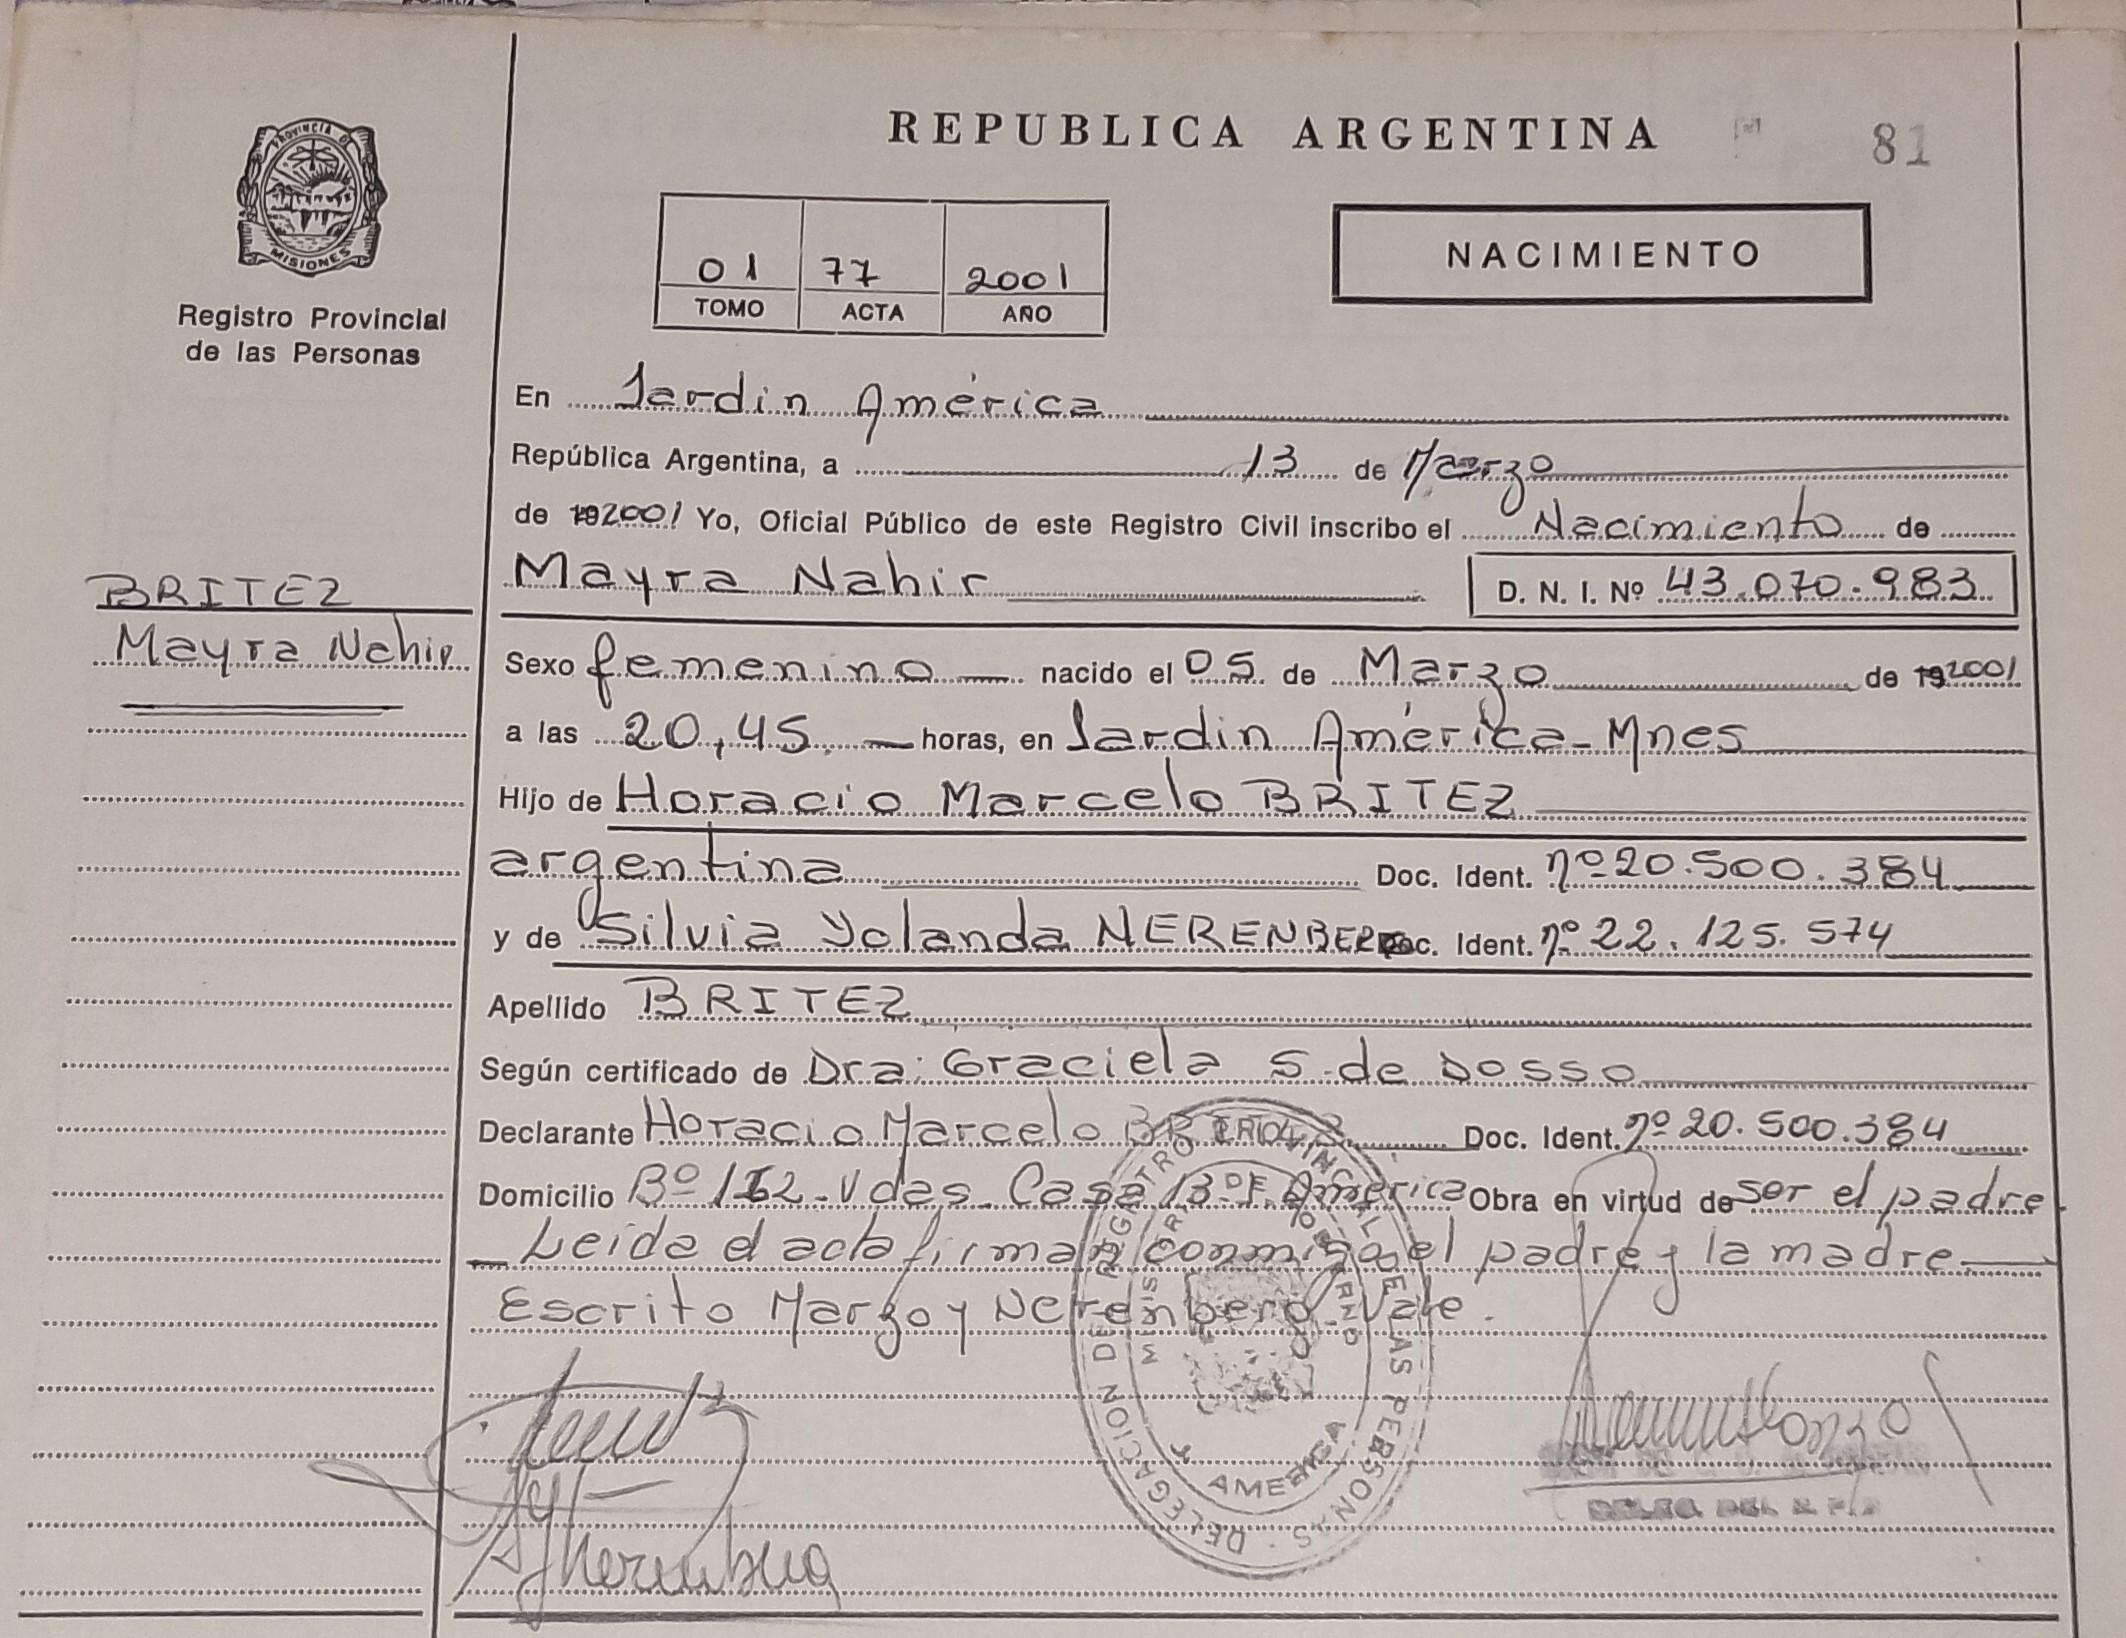 REPUBLICA ARGENTINA
81
PROVINCIA D
MISIONES
Registro Provincial
de las Personas
01 77 2001
TOMO ACTA AÑO
NACIMIENTO
En Jardin América
República Argentina, a 13 de Marzo
de 192001 Yo, Oficial Público de este Registro Civil inscribo el Nacimiento de
Mayra Nahir D. N. I. Nº 43.070.983
BRITEZ
Mayra Nahir
Sexo femenino nacido el 05 de Marzo de 192001
a las 20,45 horas, en Jardin América - Mnes
Hijo de Horacio Marcelo BRITEZ
argentina Doc. Ident. nº 20.500.384
y de Silvia Yolanda NERENBERG Doc. Ident. nº 22.125.574
Apellido BRITEZ
Según certificado de Dra: Graciela S. de Dosso
Declarante Horacio Marcelo BRITEZ Doc. Ident. nº 20.500.384
Domicilio Bº 112 Vdas. Casa 13 América Obra en virtud de ser el padre.
Leida el acta firman conmigo el padre y la madre
Escrito Marzo y Nerenberg. Vale.
DELEGACION DE REGISTRO PROVINCIAL DE LAS PERSONAS
AMERICA